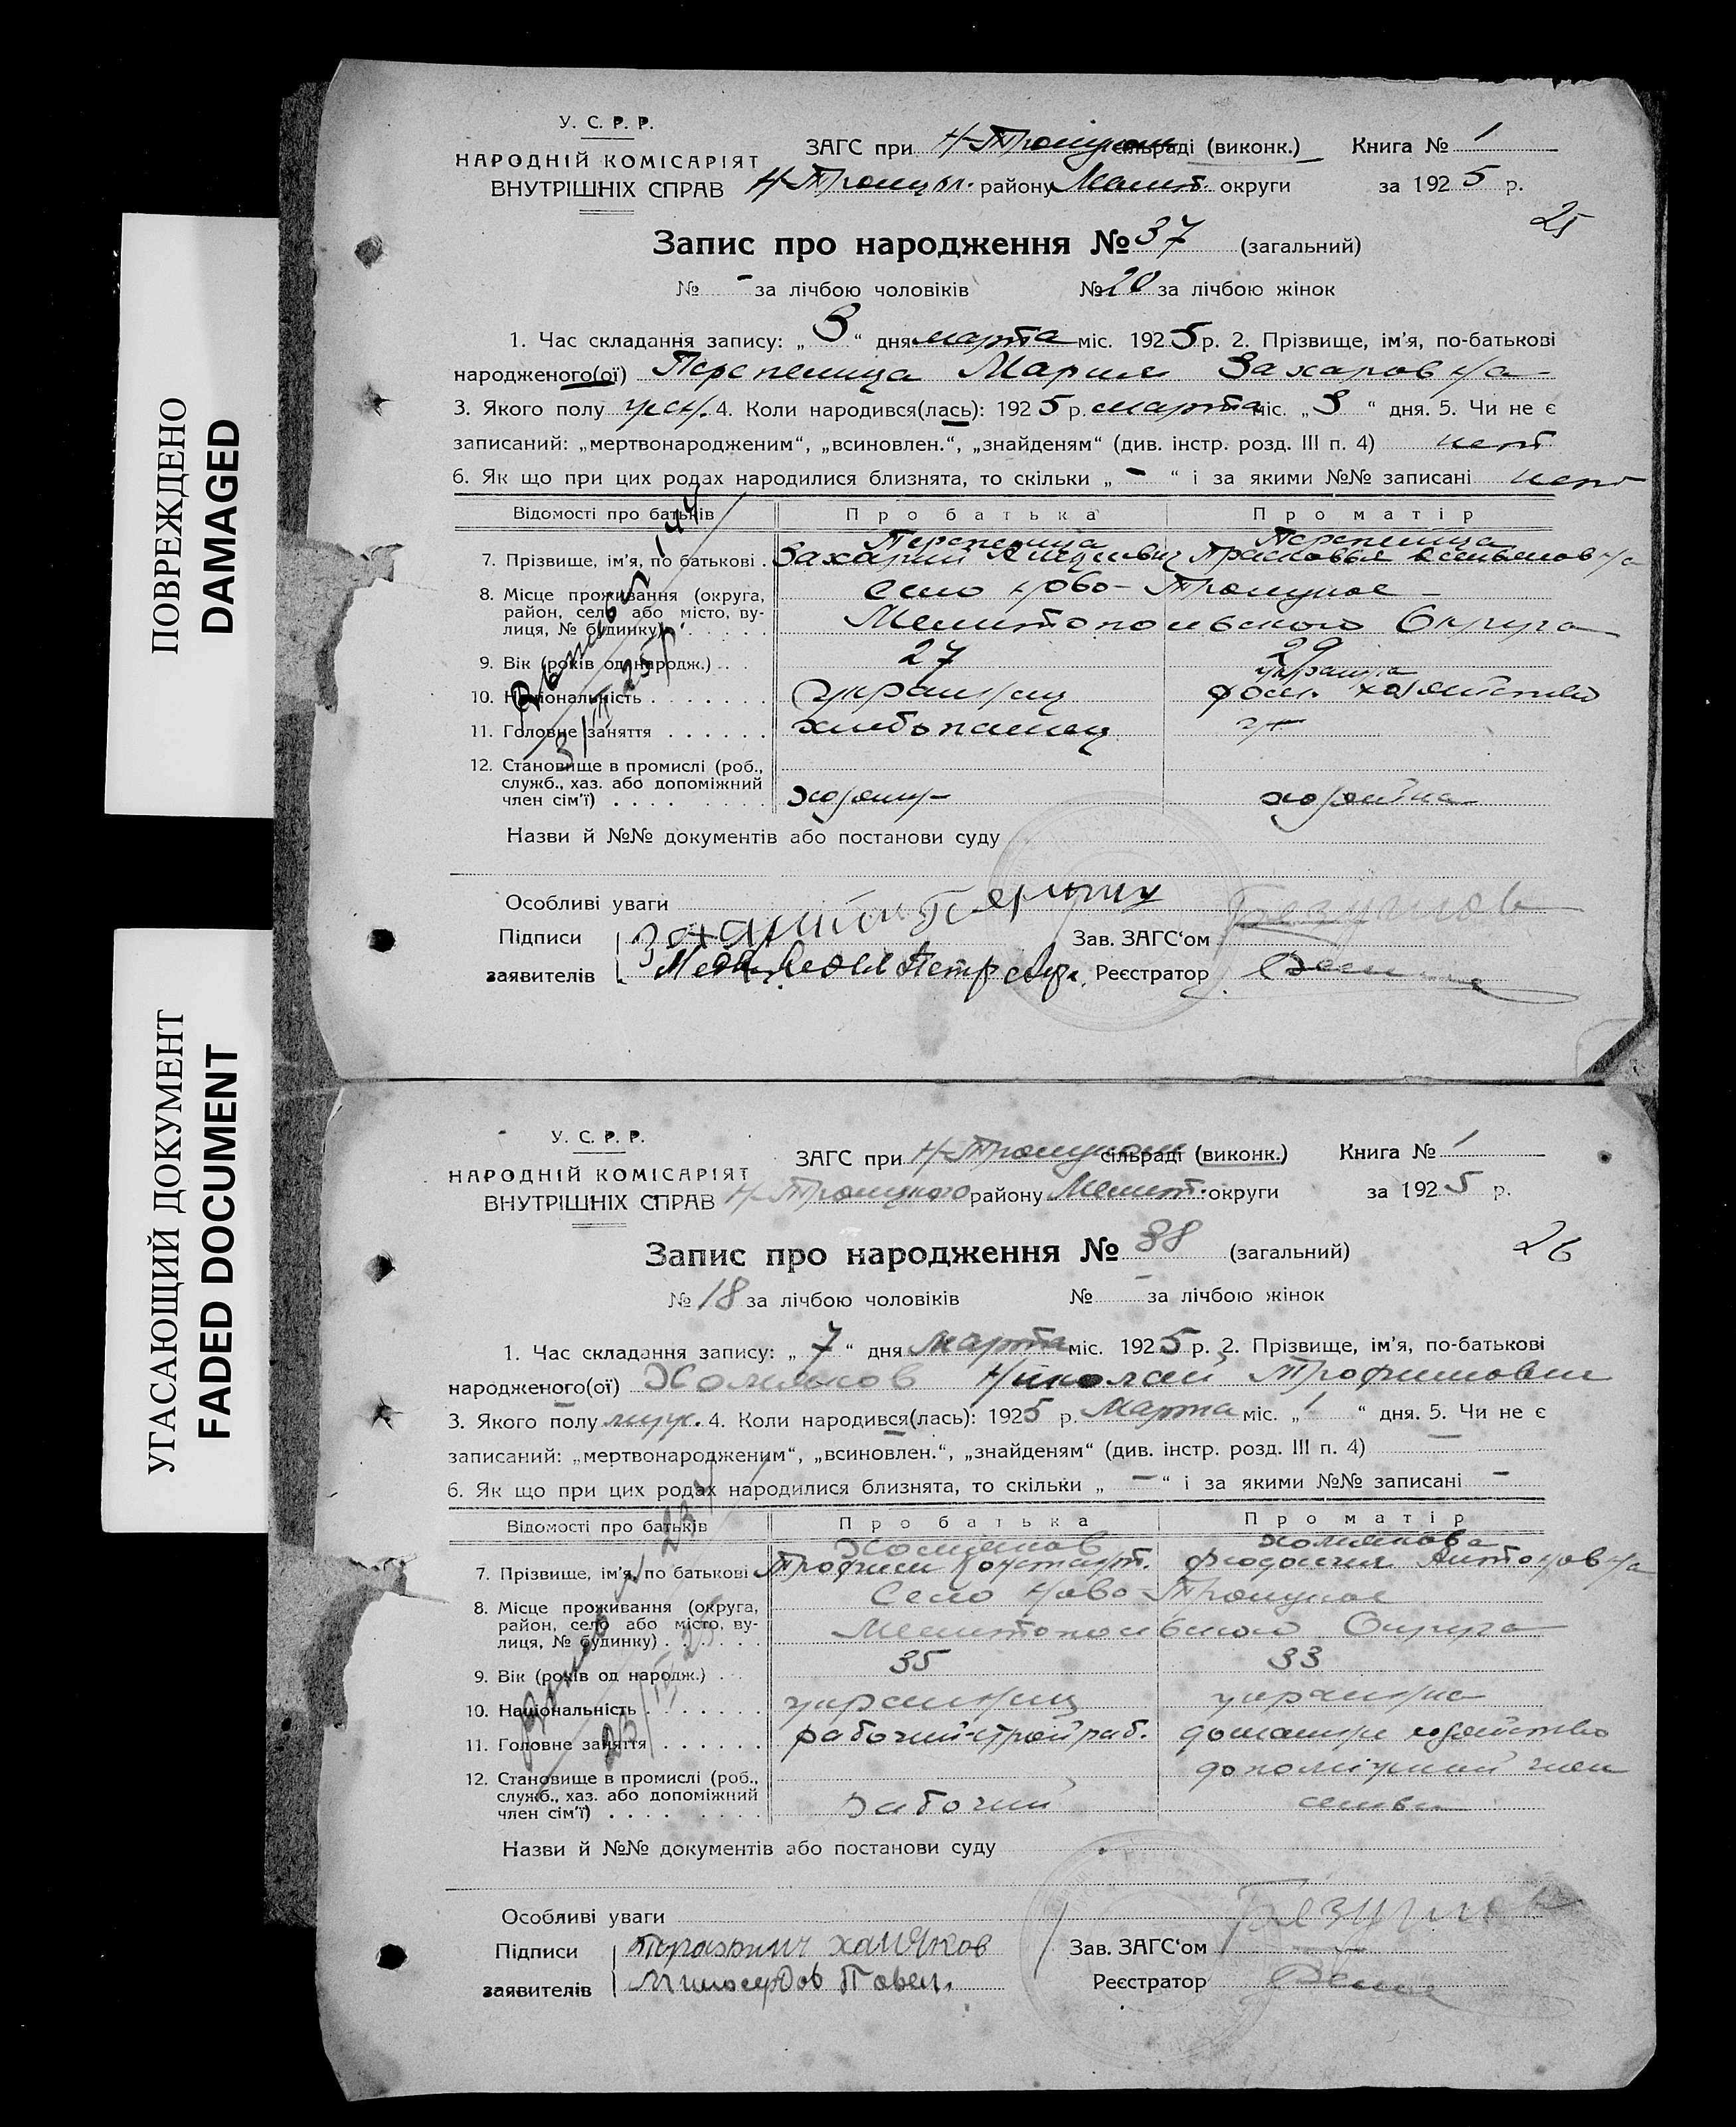 ПОВРЕЖДЕНО
DAMAGED
УГАСАЮЩИЙ ДОКУМЕНТ
FADED DOCUMENT
У. С. Р. Р.
НАРОДНІЙ КОМІСАРІЯТ
ВНУТРІШНІХ СПРАВ
ЗАГС при Н-Троицком сільраді (виконк.) Книга № 1
Н-Троицк. району Мелит. округи за 1925 р.
25
Запис про народження № 37 (загальний)
№ - за лічбою чоловіків № 20 за лічбою жінок
1. Час складання запису: „ 3 “ дня марта міс. 1925 р. 2. Прізвище, ім'я, по-батькові
народженого(ої) Перепелица Мария Захаровна
3. Якого полу жен. 4. Коли народився(лась): 1925 р. марта міс. „ 3 “ дня. 5. Чи не є
записаний: „мертвонародженим“, „всиновлен.“, „знайденям“ (див. інстр. розд. III п. 4) нет
6. Як що при цих родах народилися близнята, то скільки „ - “ і за якими №№ записані нет
Відомості про батьків Про батька Про матір
Перепелица Перепелица
7. Прізвище, ім'я, по батькові . Захарий Прасковья
8. Місце проживання (округа, село Ново-Троицкое
район, село або місто, ву-
лиця, № будинку) Мелитопольского Округа
9. Вік (років од народж.) 27 29
украинка
10. Національність украинец дом. хозяйство
11. Головне заняття хлебопашец
12. Становище в промислі (роб.,
служб., хаз. або допоміжний
член сім'ї) хозяин хозяйка
Назви й №№ документів або постанови суду
Особливі уваги
Підписи Захарий Зав. ЗАГС'ом
заявителів Петр Реєстратор
У. С. Р. Р.
НАРОДНІЙ КОМІСАРІЯТ
ВНУТРІШНІХ СПРАВ
ЗАГС при Н-Троицком сільраді (виконк.) Книга № 1
Н-Троицкого району Мелит. округи за 1925 р.
26
Запис про народження № 38 (загальний)
№ 18 за лічбою чоловіків № - за лічбою жінок
1. Час складання запису: „ 7 “ дня марта міс. 1925 р. 2. Прізвище, ім'я, по-батькові
народженого(ої) Холмяков Николай Трофимович
3. Якого полу муж. 4. Коли народився(лась): 1925 р. Марта міс. „ 1 “ дня. 5. Чи не є
записаний: „мертвонародженим“, „всиновлен.“, „знайденям“ (див. інстр. розд. III п. 4)
6. Як що при цих родах народилися близнята, то скільки „ - “ і за якими №№ записані -
Відомості про батьків Про батька Про матір
Холмяков Холмякова
7. Прізвище, ім'я, по батькові Трофим Констант. Феодосия Антоновна
8. Місце проживання (округа, Село Ново-Троицкое
район, село або місто, ву-
лиця, № будинку) Мелитопольского Округа
9. Вік (років од народж.) 35 33
10. Національність украинец украинка
11. Головне заняття рабочий-стройраб. домашнее хозяйство
12. Становище в промислі (роб., допоміжний член
служб., хаз. або допоміжний
член сім'ї) рабочий семьи
Назви й №№ документів або постанови суду
Особливі уваги
Підписи Зав. ЗАГС'ом
заявителів Милосердов Павел. Реєстратор